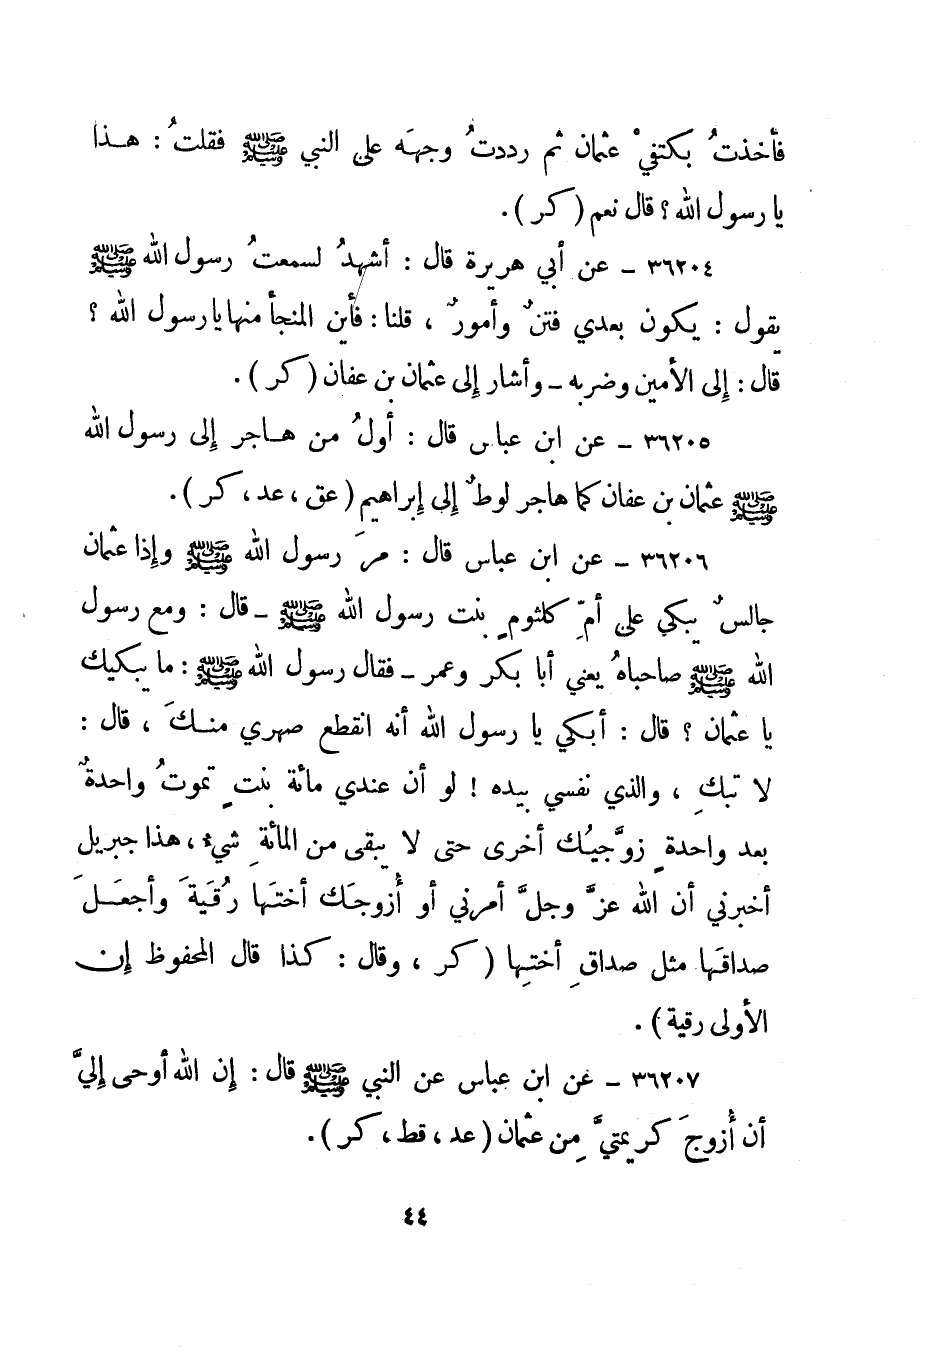 فأخذتُ بكتفيْ عثمان ثم رددتُ وجهَه على النبي ﷺ فقلتُ : هـذا
يا رسول الله ؟ قال نعم ( كر ) .
٣٦٢٠٤ ـ عن أبي هريرة قال : أشهدُ لسمعتُ رسول الله ﷺ
يقول : يكون بعدي فتنٌ وأمورٌ ، قلنا : فأين المنجأ منها يا رسول الله ؟
قال : إلى الأمين وضربه ـ وأشار إلى عثمان بن عفان ( كر ) .
٣٦٢٠٥ ـ عن ابن عباس قال : أولُ من هـاجر إلى رسول الله
ﷺ عثمان بن عفان كما هاجر لوطٌ إلى إبراهيم ( عق ، عد ، كر ) .
٣٦٢٠٦ ـ عن ابن عباس قال : مرَ رسول الله ﷺ وإذا عثمان
جالسٌ يبكي على أمِّ كلثومٍ بنت رسول الله ﷺ ـ قال : ومع رسول
الله ﷺ صاحباهُ يعني أبا بكر وعمر ـ فقال رسول الله ﷺ : ما يبكيك
يا عثمان ؟ قال : أبكي يا رسول الله أنه انقطع صهري منـكَ ، قال :
لا تبكِ ، والذي نفسي بيده ! لو أن عندي مائة بنتٍ تموتُ واحدةٌ
بعد واحدةٍ زوَّجيُك أخرى حتى لا يبقى من المائةِ شيء ، هذا جبريل
أخبرني أن الله عزَّ وجلَّ أمرني أو أُزوجَك أختَها رُقَيةَ وأجعَـلَ
صداقَها مثل صداقِ أختِها ( كر ، وقال : كذا قال المحفوظ إن
الأولى رقية ) .
٣٦٢٠٧ ـ عن ابن عباس عن النبي ﷺ قال : إن الله أوحى إليَّ
أن أُزوجَ كريمتيَّ مِن عثمان ( عد ، قط ، كر ) .
٤٤